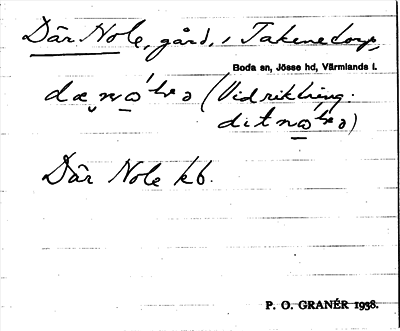 Där Nole, gård, i Takenedorp,
Boda sn, Jösse hd, Värmlands l.
(Vidriktning:
Där Nole kb.
P. O. GRANÉR 1938.